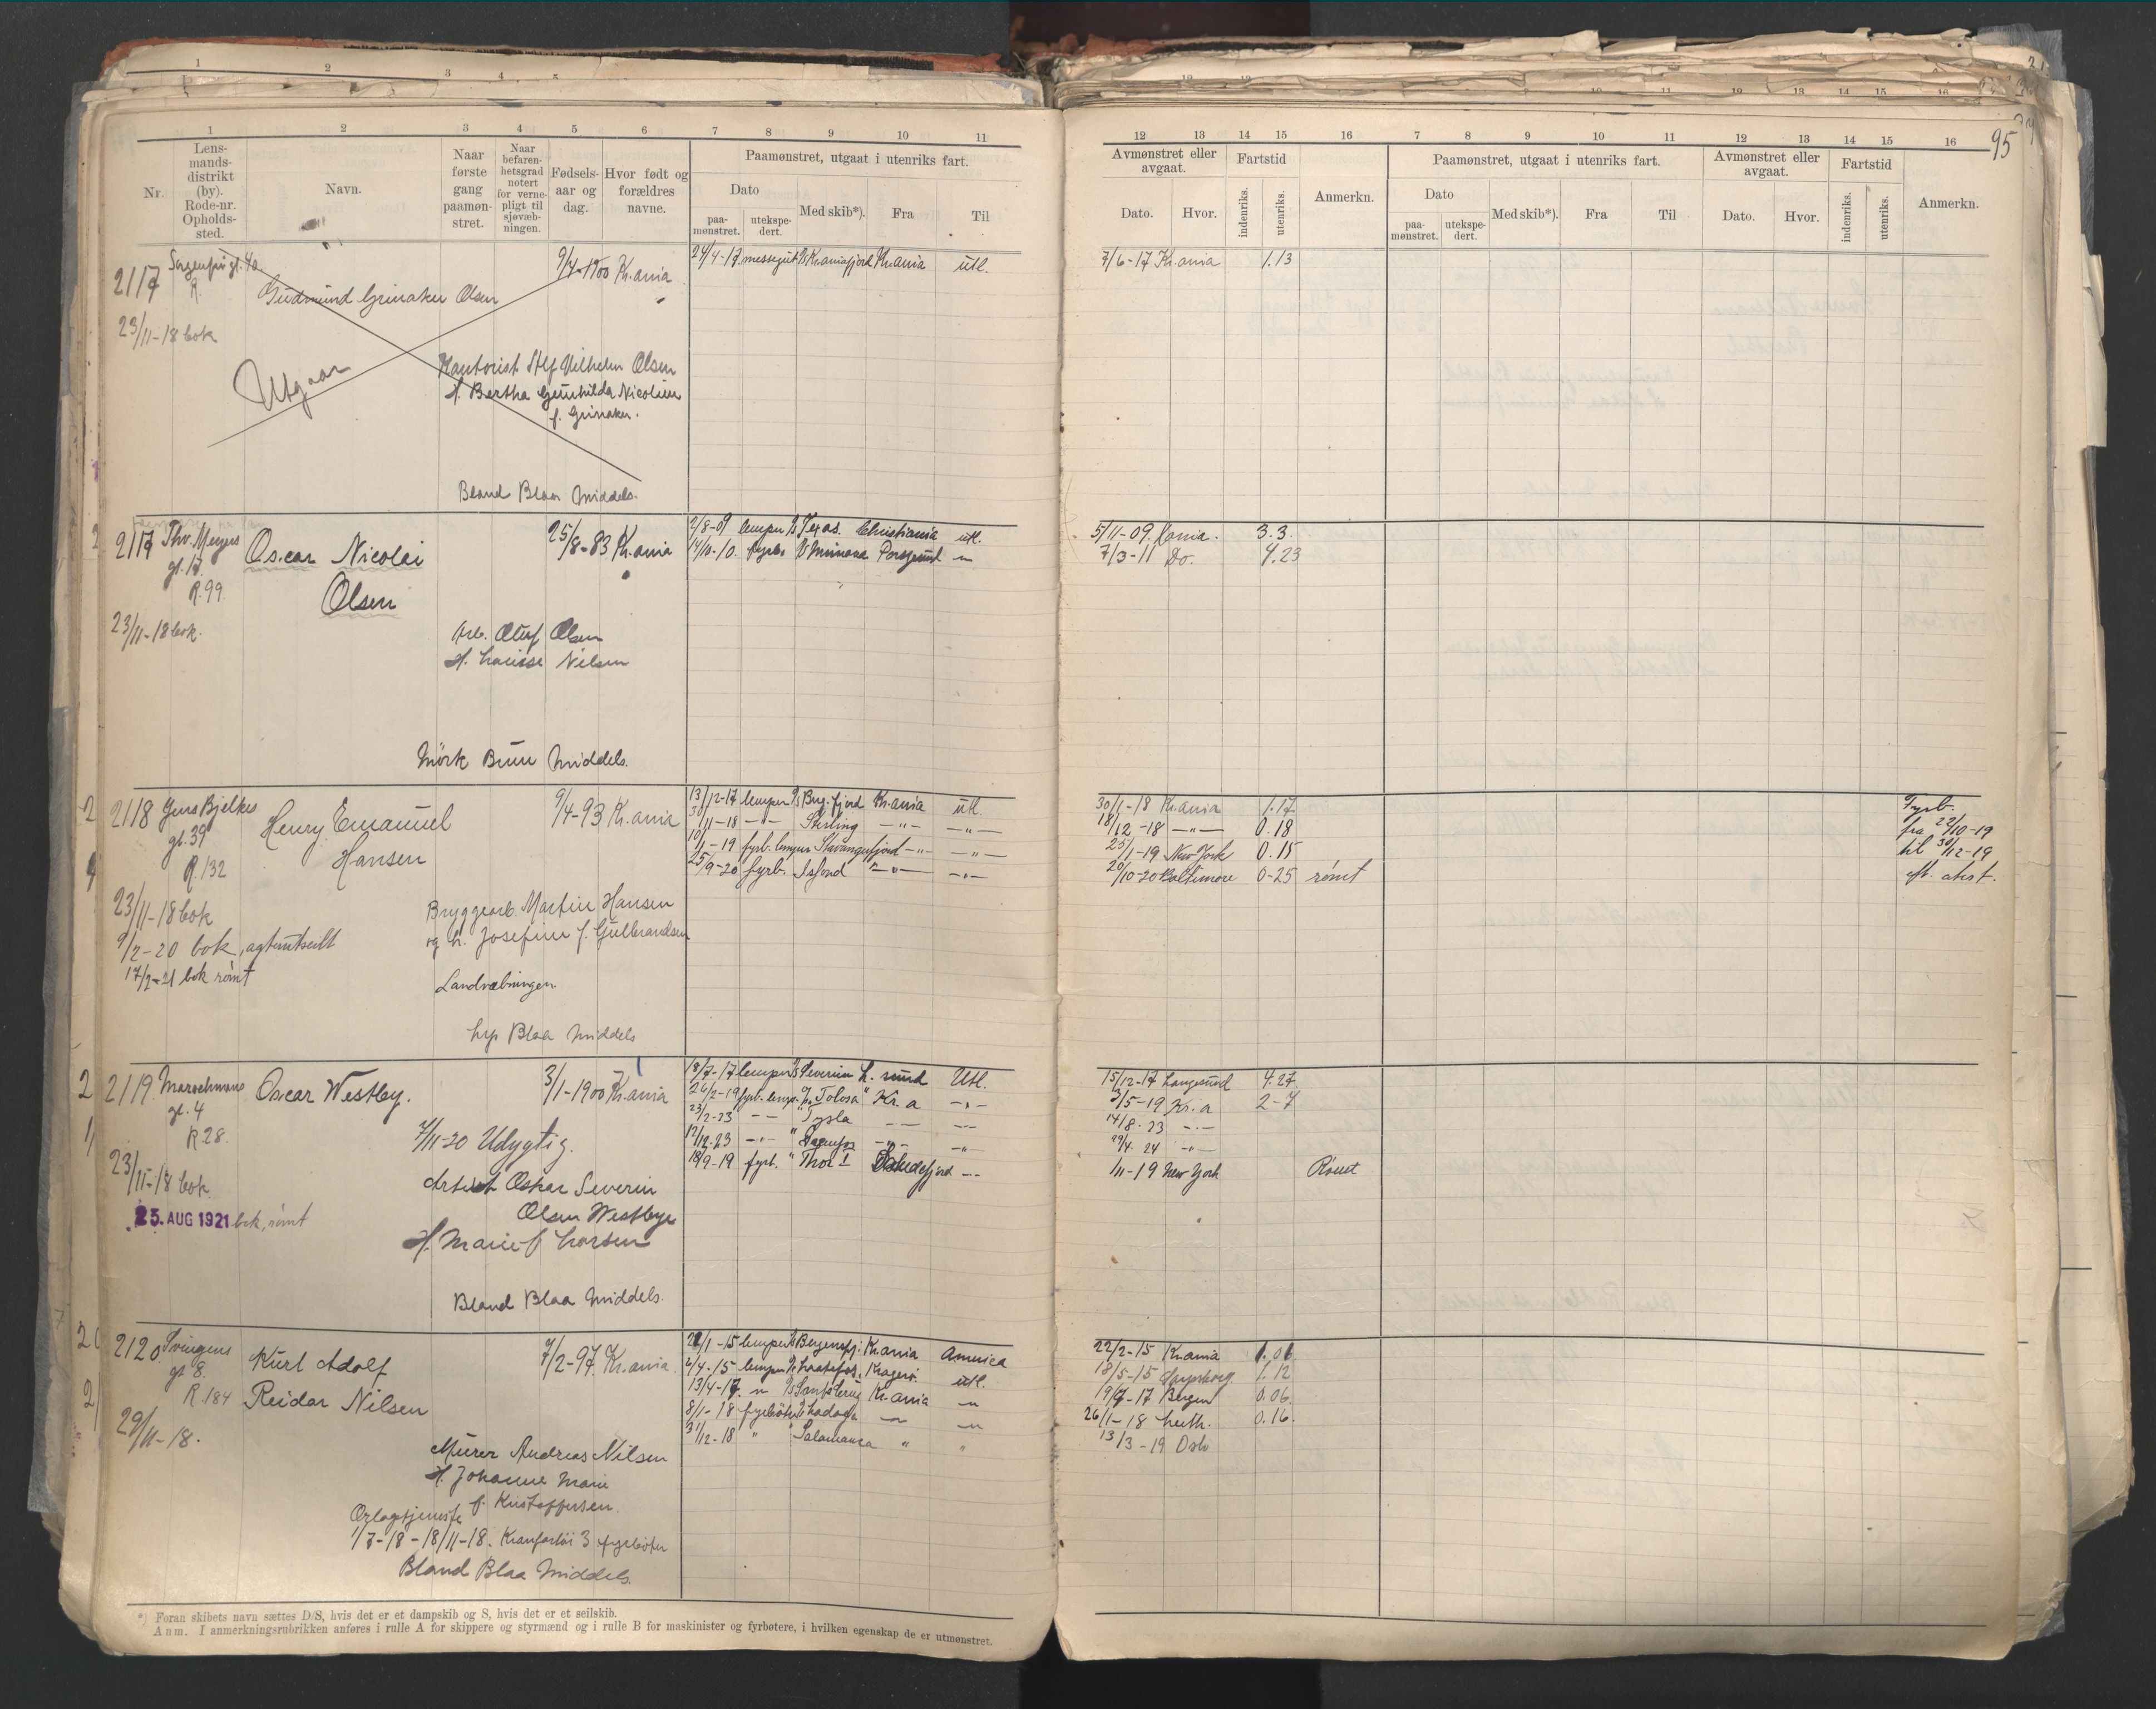 95
1 2 3 4 5 6 7 8 9 10 11
Nr. Lensmandsdistrikt (by). Rode-nr. Opholdssted. Navn. Naar første gang paamønstret. Naar befarenhetsgrad notert for vernepligt til sjøvæbningen. Fødselsaar og dag. Hvor født og forældres navne. Paamønstret, utgaat i utenriks fart.
Dato paamønstret. utekspedert. Med skib*). Fra Til
12 13 14 15 16 7 8 9 10 11 12 13 14 15 16
Avmønstret eller avgaat. Fartstid Anmerkn. Paamønstret, utgaat i utenriks fart. Avmønstret eller avgaat. Fartstid Anmerkn.
Dato. Hvor. indenriks. utenriks. Dato paamønstret. utekspedert. Med skib*). Fra Til Dato. Hvor. indenriks. utenriks.
2117 Sorgenfrigt. 4a. 9/4-1900 Kr.ania 24/4-17. messegut Kr.aniafjord Kr.ania utl. 7/6-17 Kr.ania 1.13
R.
Gudmund Grinaker Olsen
23/11-18 bok
Utgaar
Kontorist Vilhelm Olsen
H. Bertha Gunhilda Nicoline
f. Grinaker.
Bland Blaa Middels.
2117 Thv. Meyers gt. 17. R. 99 Oscar Nicolai Olsen 25/8-83 Kr.ania
2/8-09 lemper Texas. Christiania utl. 5/11-09. Kania. 3.3.
14/10-10. fyrb. Porsgrund 7/3-11 Do. 4.23
23/11-18 bok.
Arb. Oluf Olsen
H. Louise Nilsen
Mörk Brun Middels.
2118 Jens Bjelkes gt. 39 R. 132 Henry Emanuel Hansen 9/4-93 Kr.ania
13/12-17 lemper Kr.ania utl. 30/1-18 Kr.ania 1.17
3/11-18 -"- Stirling -"- -"- 18/12-18 -"- 0.18
10/1-19 fyrb. lemper Stavangerfjord -"- -"- 25/1-19 New York 0.15
25/9-20 fyrb. -"- -"- 20/10-20 Baltimore 0-25 rømt
Fyrb.
fra 22/10-19
til 30/12-19
eft. atest.
23/11-18 bok
9/2-20 bok,
17/2-21 bok rømt
Bryggearb. Martin Hansen
og h. Josefine f. Gulbrandsen
Landvæbningen
Lys Blaa Middels
2119 gt. 4 R 28. Oscar Westby. 3/1-1900 Kr.ania
18/7-17 lemper Severin L. sund Utl. 15/12-17 Langesund 4.27.
26/2-19 fyrb. lemp. "Tolosa" Kr. a -"- 3/5-19 Kr. a 2-7
23/2-23 -"- Tysla 14/8-23 -"-
12/12-23 -"- 29/4. 24 -"-
18/9-19 fyrb. " Thor I 1/11-19 New York Rømt
7/11-20 Udygtig.
23/11-18 bok
25. AUG 1921 bok, rømt
Oskar Severin
Olsen Westbye
H. Marie f. Larsen
Bland Blaa Middels.
2120. gt 8. R. 184 Kurt Adolf Reidar Nilsen 7/2-97. Kr.ania.
22/1-15 lemper Bergensfj. Kr.ania America 22/2-15 Kr.ania 1.01
2/4-15 lemper Kragerö. utl. 18/5-15 1.12
13/4-17. " Kr.ania " 19/7-17 Bergen 0.06.
8/1-18 fyrböter Ladoga " " 26/1-18 Leith. 0.16.
31/12-18 " Salamanca " " 13/3-19 Oslo
29/11-18.
Murer Andreas Nilsen
H. Johanne Marie
f. Kristoffersen.
Orlogstjeneste
1/7-18 - 18/11-18. 3 fyrböter
Bland Blaa Middels.
*) Foran skibets navn sættes D/S, hvis det er et dampskib og S, hvis det er et seilskib.
Anm. I anmerkningsrubrikken anføres i rulle A for skippere og styrmænd og i rulle B for maskinister og fyrbøtere, i hvilken egenskap de er utmønstret.